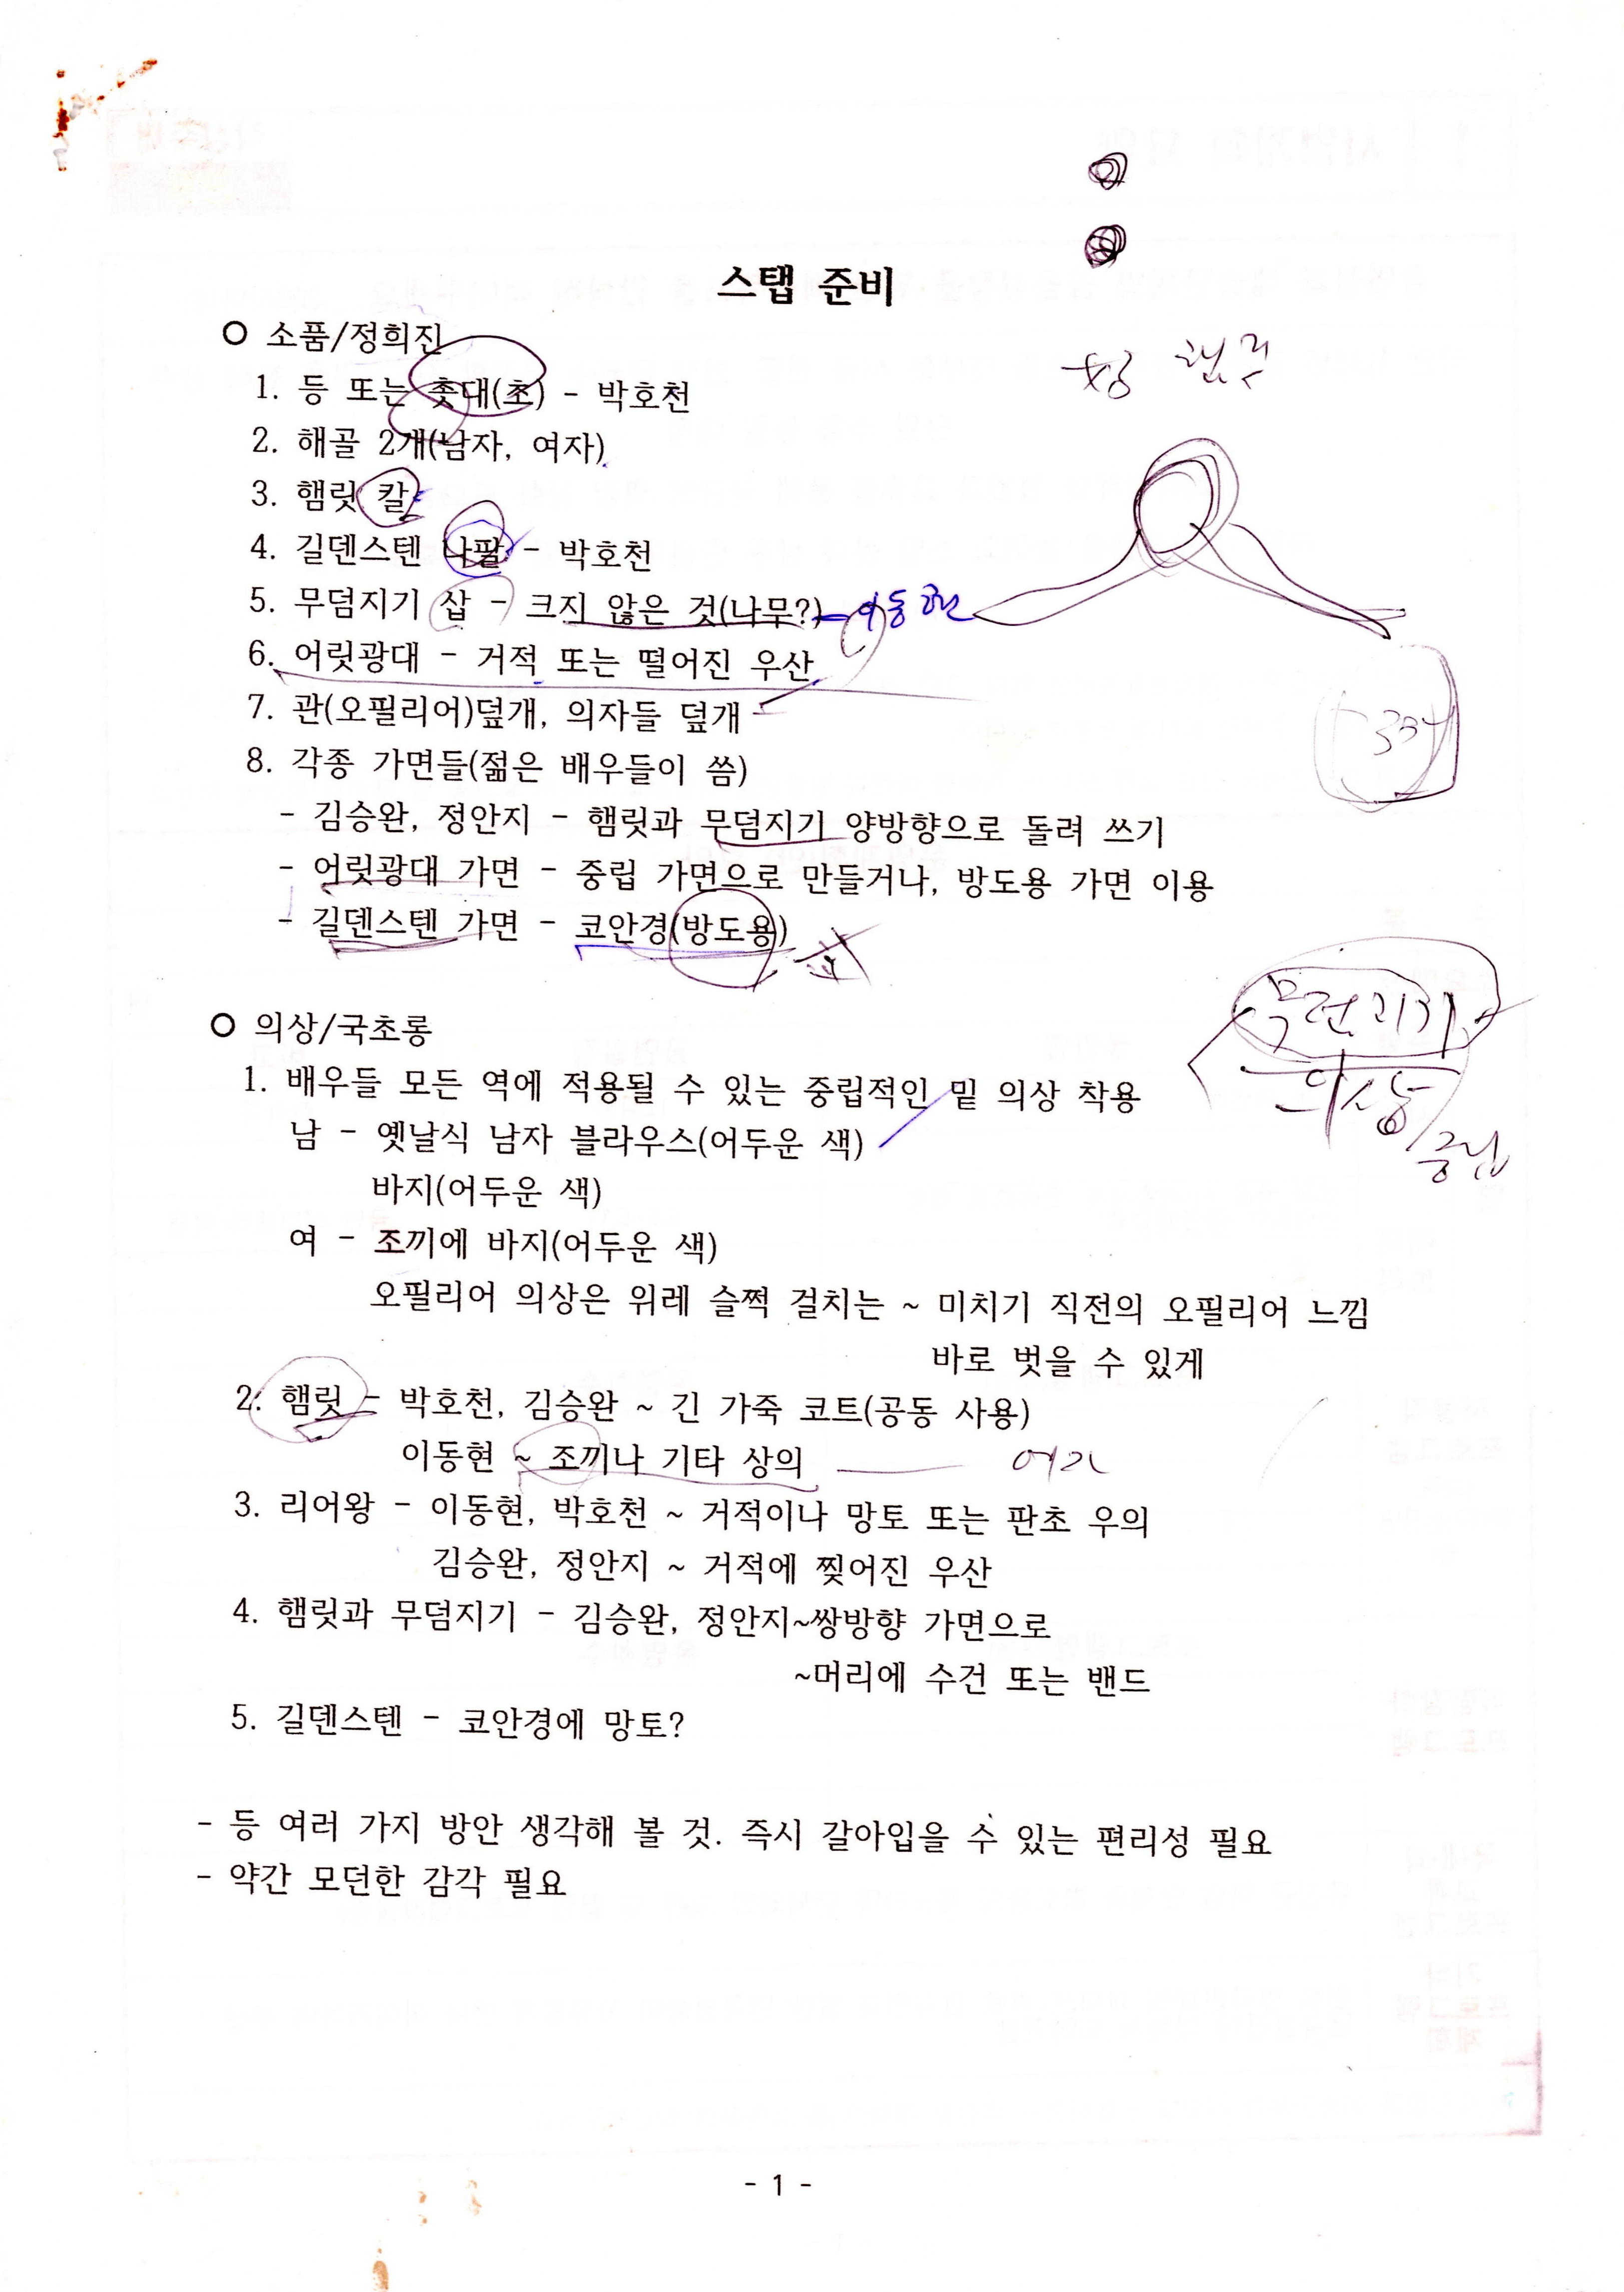 스탭 준비
○ 소품/정희진
1. 등 또는 촛대(초) - 박호천
2. 해골 2개(남자, 여자)
3. 햄릿 칼
4. 길덴스텐 나팔 - 박호천
5. 무덤지기 삽 - 크지 않은 것(나무?) 이동현
6. 어릿광대 - 거적 또는 떨어진 우산
7. 관(오필리어)덮개, 의자들 덮개
8. 각종 가면들(젊은 배우들이 씀)
- 김승완, 정안지 - 햄릿과 무덤지기 양방향으로 돌려 쓰기
- 어릿광대 가면 - 중립 가면으로 만들거나, 방도용 가면 이용
- 길덴스텐 가면 - 코안경(방도용)
무덤지기
의상
중립
○ 의상/국초롱
1. 배우들 모든 역에 적용될 수 있는 중립적인 밑 의상 착용
남 - 옛날식 남자 블라우스(어두운 색)
바지(어두운 색)
여 - 조끼에 바지(어두운 색)
오필리어 의상은 위레 슬쩍 걸치는 ~ 미치기 직전의 오필리어 느낌
바로 벗을 수 있게
2. 햄릿 - 박호천, 김승완 ~ 긴 가죽 코트(공동 사용)
이동현 ~ 조끼나 기타 상의
3. 리어왕 - 이동현, 박호천 ~ 거적이나 망토 또는 판초 우의
김승완, 정안지 ~ 거적에 찢어진 우산
4. 햄릿과 무덤지기 - 김승완, 정안지~쌍방향 가면으로
~머리에 수건 또는 밴드
5. 길덴스텐 - 코안경에 망토?
- 등 여러 가지 방안 생각해 볼 것. 즉시 갈아입을 수 있는 편리성 필요
- 약간 모던한 감각 필요
- 1 -